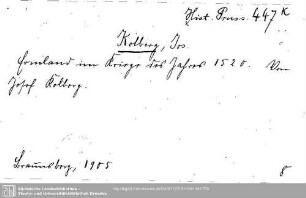 Hist. Pruss. 447 K
Kolberg, Jos.
Ermland im Kriege des Jahres 1520. Von
Josef Kolberg.
Braunsberg, 1905
8
Sächsische Landesbibliothek -
Staats- und Universitätsbibliothek Dresden